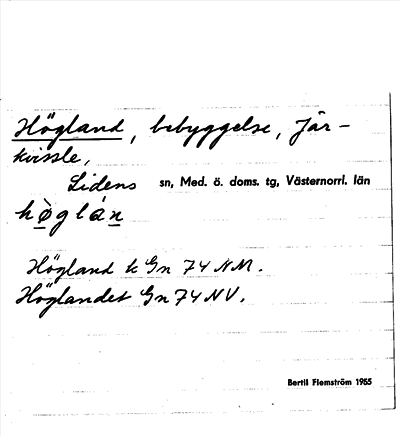 Högland, bebyggelse, Jär-
kvissle,
Lidens sn, Med. ö. doms. tg, Västernorrl. län
hø̀glán̲
Högland k Gn 74 NM.
Höglandet Gn 74 NV.
Bertil Flemström 1955